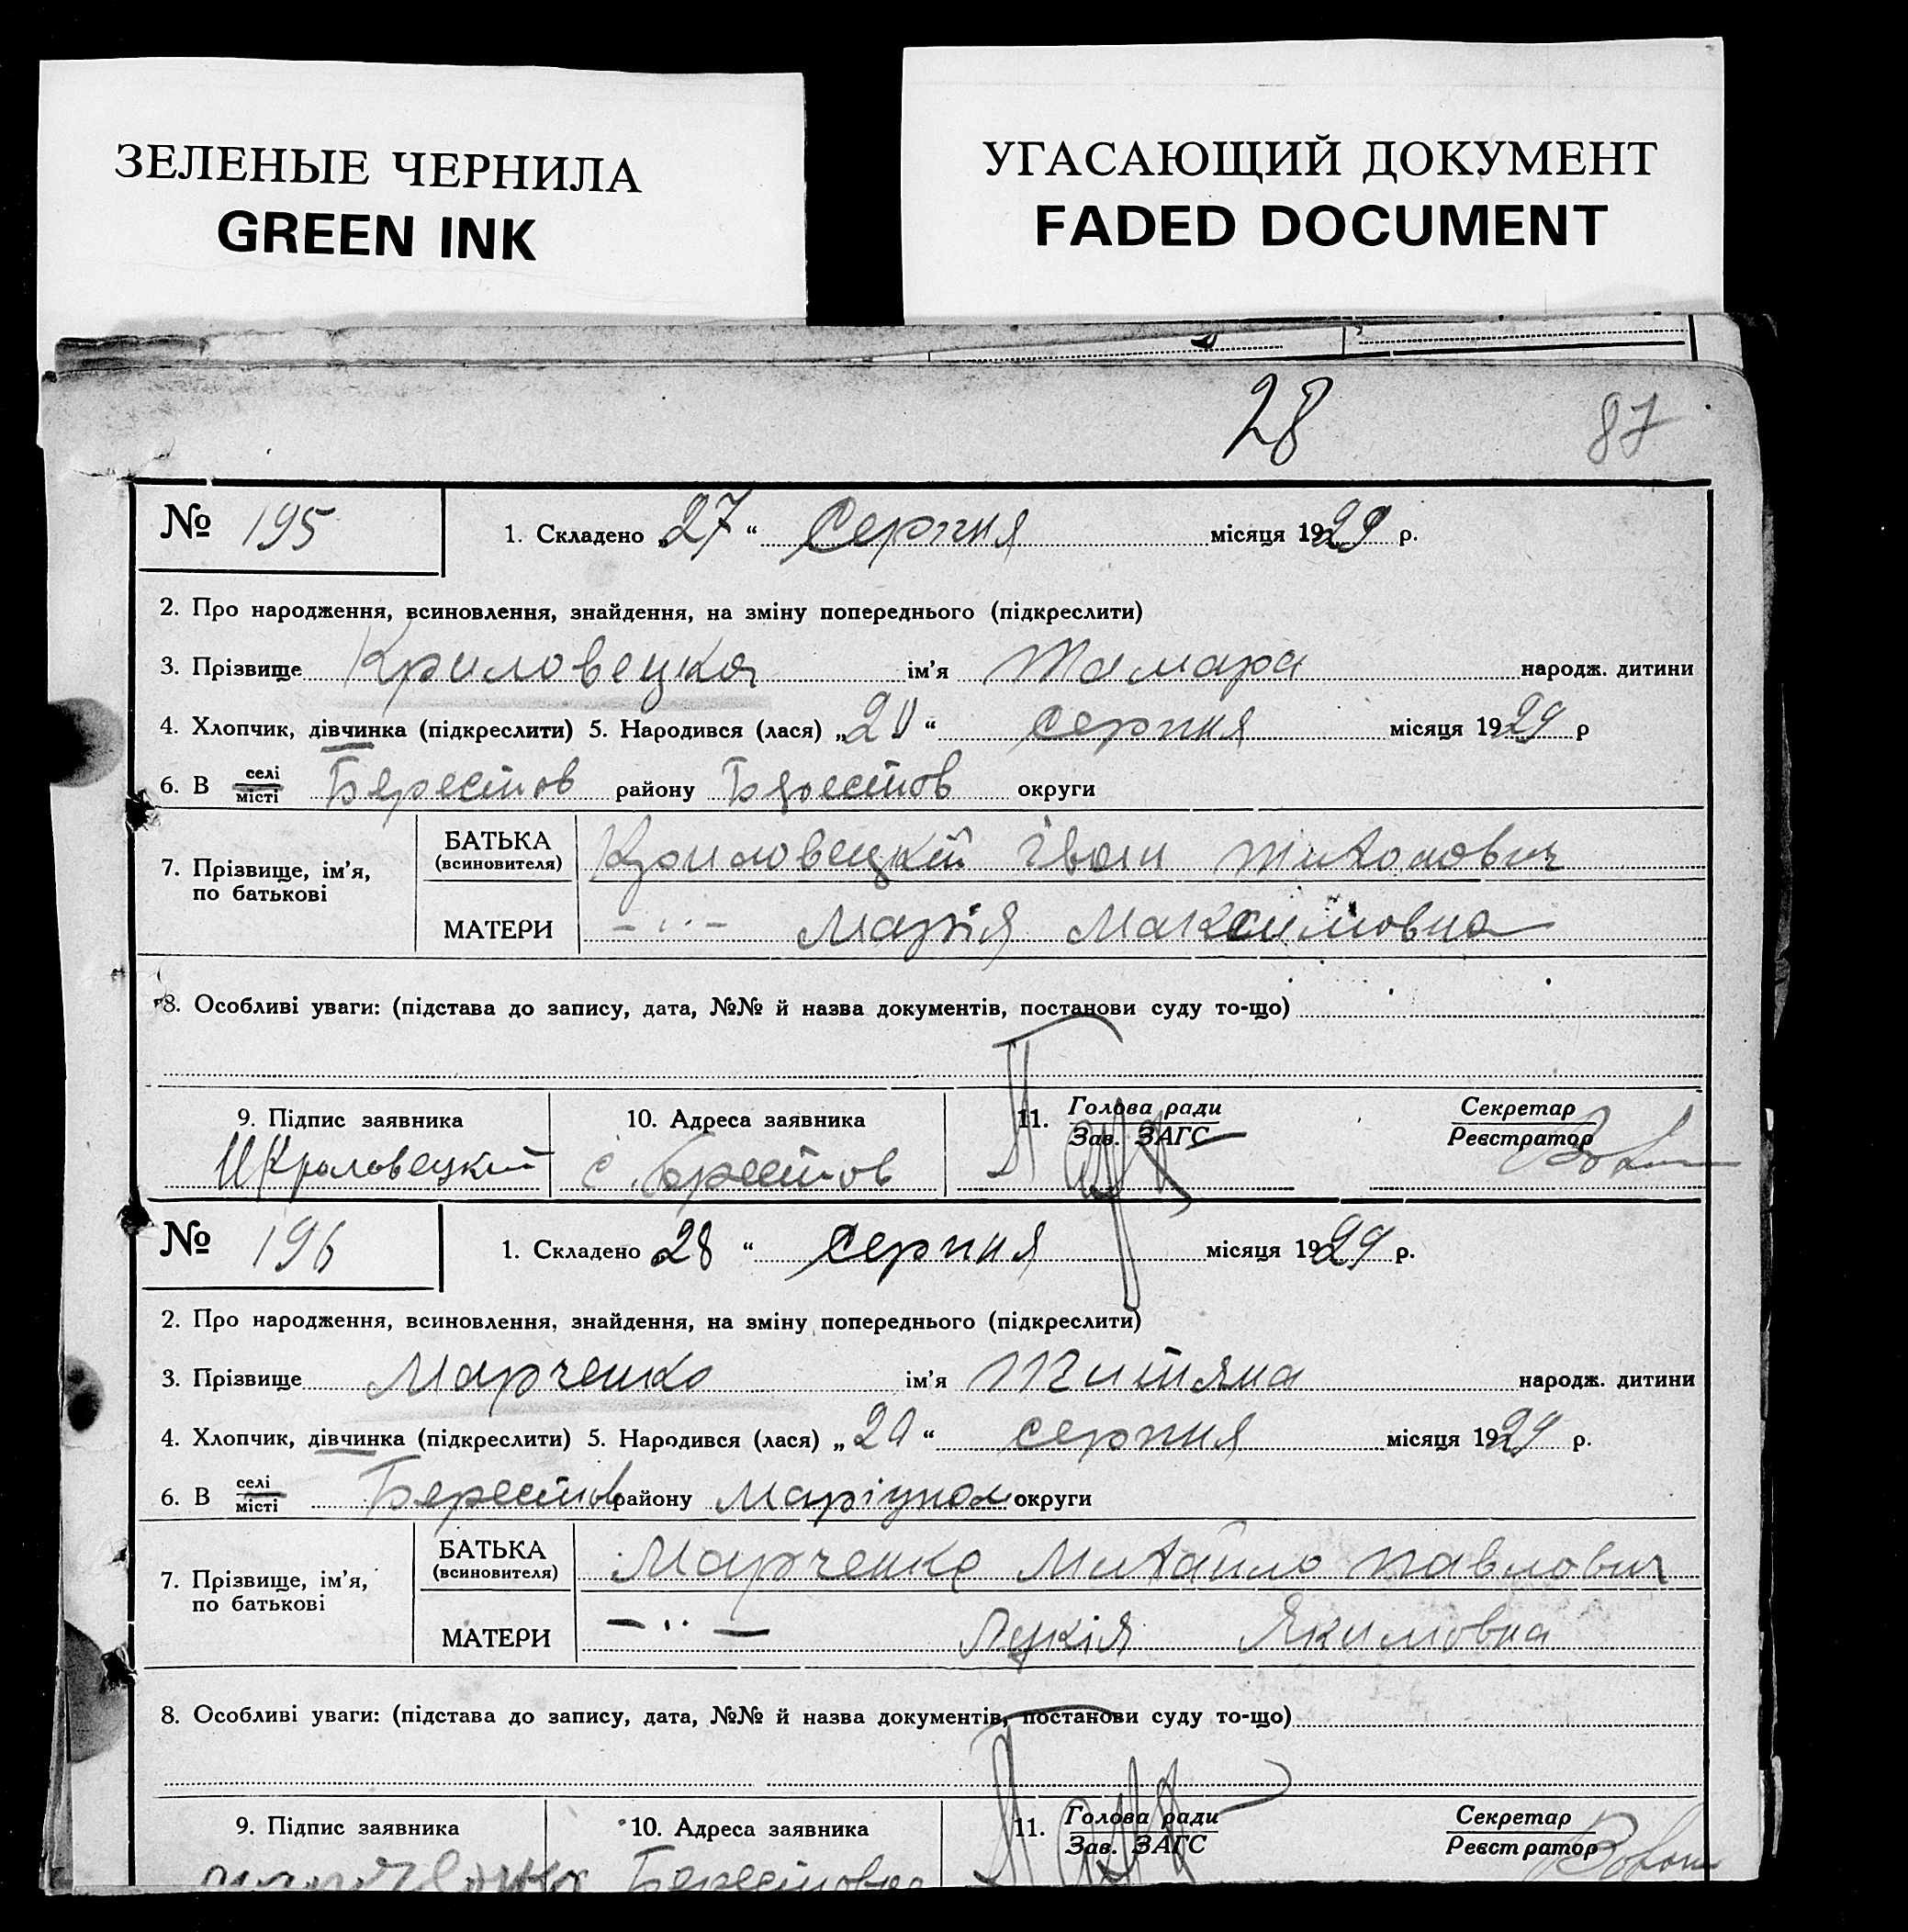 ЗЕЛЕНЫЕ ЧЕРНИЛА
GREEN INK
УГАСАЮЩИЙ ДОКУМЕНТ
FADED DOCUMENT
28 87
№ 195 1. Складено „27“ Серпня місяця 1929 р.
2. Про народження, всиновлення, знайдення, на зміну попереднього (підкреслити)
3. Прізвище Криловецка ім’я Тамара народж. дитини
4. Хлопчик, дівчинка (підкреслити) 5. Народився (лася) „20“ серпня місяця 1929 р
6. В селі місті Берестов району Берестов округи
7. Прізвище, ім’я, по батькові
БАТЬКА (всиновителя) Криловецкий Іван Тихонович
МАТЕРИ – ·· – Марія Максимовна
8. Особливі уваги: (підстава до запису, дата, №№ й назва документів, постанови суду то-що)
9. Підпис заявника 10. Адреса заявника 11. Голова ради Зав. ЗАГС Секретар Реєстратор
ИКриловецкий с. Берестов
№ 196 1. Складено 28“ серпня місяця 1929 р.
2. Про народження, всиновлення, знайдення, на зміну попереднього (підкреслити)
3. Прізвище Марченко ім’я Титяна народж. дитини
4. Хлопчик, дівчинка (підкреслити) 5. Народився (лася) „20“ серпня місяця 1929 р.
6. В селі місті Берестов району Маріупол округи
7. Прізвище, ім’я, по батькові
БАТЬКА (всиновителя) Марченко Михайло Павлович
МАТЕРИ – ·· – Лукія Якимовна
8. Особливі уваги: (підстава до запису, дата, №№ й назва документів, постанови суду то-що)
9. Підпис заявника 10. Адреса заявника 11. Голова ради Зав. ЗАГС Секретар Реєстратор